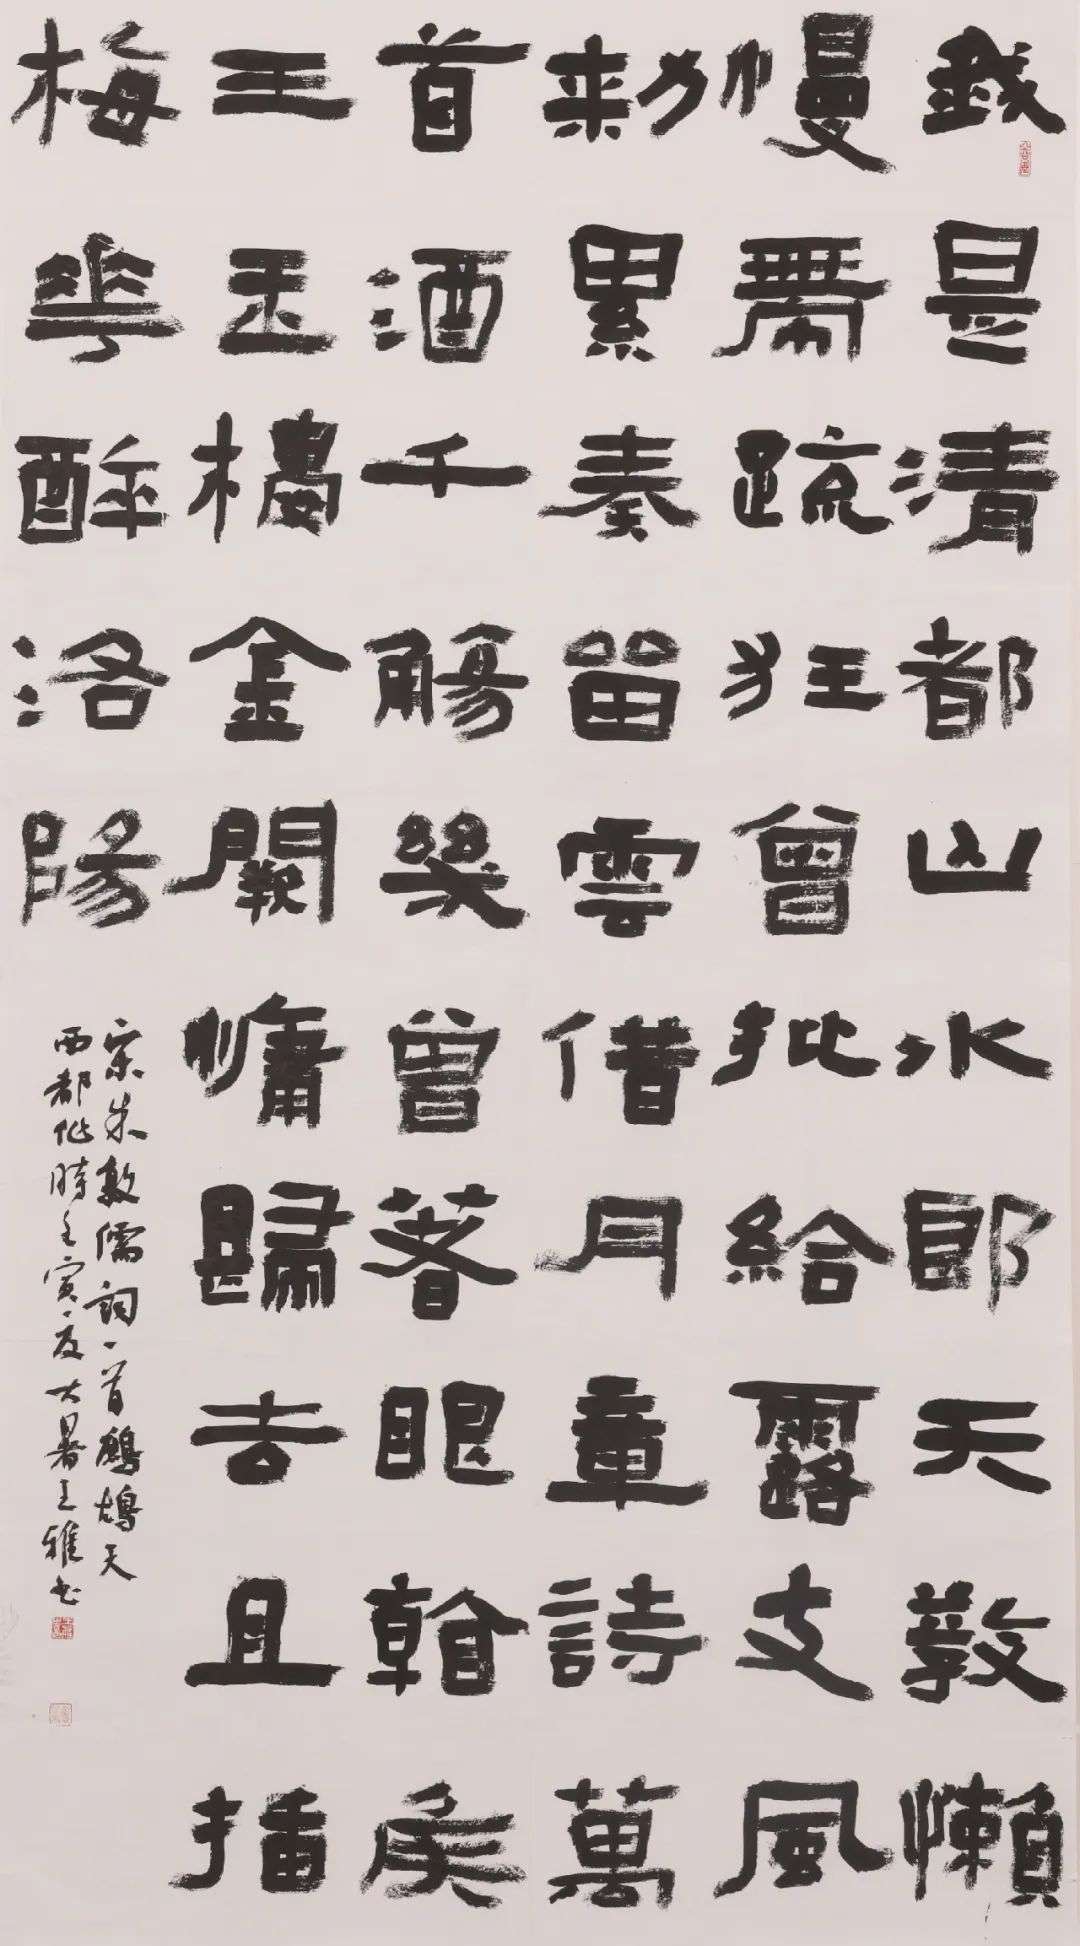 我是清都山水郎天教懶
慢帶疏狂曾批給露支風
勑累奏留雲借月章詩萬
首酒千觴幾曾著眼看矦
王玉樓金闕慵歸去且插
梅花醉洛陽
宋朱敦儒詞一首鷓鴣天
西都作時壬寅之夏大暑王雅書